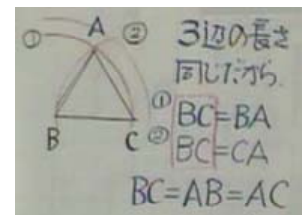 A
①
②
B
C
3辺の長さ
同じだから
① BC=BA
② BC=CA
BC=AB=AC